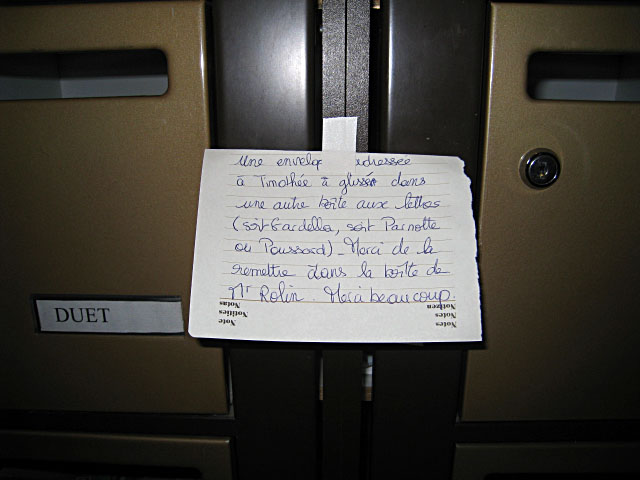 Une envelop adressée
à Timothée à glissée dans
une autre boîte aux lettres
(soit Gardella, soit Parnotte
ou Poussard). Merci de la
remettre dans la boîte de
Mr Rolin. Merci beaucoup.
Notas Notizen
Notities Notes
Note Notes
DUET